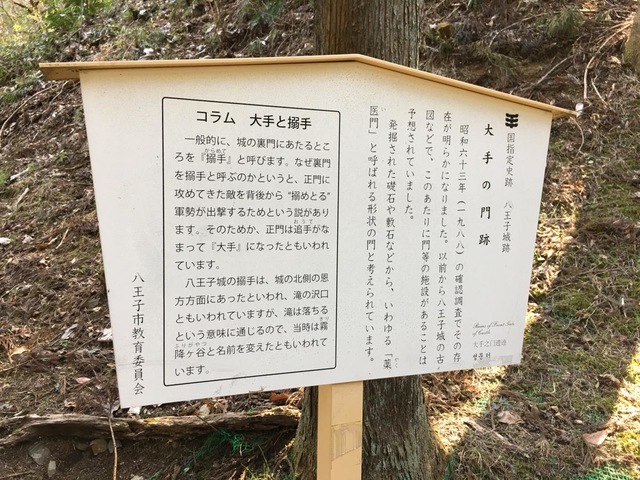 国指定史跡　八王子城跡
大手の門跡
昭和六十三年（一九八八）の確認調査でその存
在が明らかになりました。以前から八王子城の古
図などで、このあたりに門等の施設があることは
予想されていました。
発掘された礎石や敷石などから、いわゆる「薬
やく
医門」と呼ばれる形状の門と考えられています。
い
コラム　大手と搦手
一般的に、城の裏門にあたるとこ
からめて
ろを『搦手』と呼びます。なぜ裏門
を搦手と呼ぶのかというと、正門に
攻めてきた敵を背後から“搦めとる”
軍勢が出撃するためという説があり
おうて
ます。そのためか、正門は追手がな
まって『大手』になったともいわれ
ています。
八王子城の搦手は、城の北側の恩
方方面にあったといわれ、滝の沢口
ともいわれていますが、滝は落ちる
という意味に通じるので、当時は霧
きり
降ヶ谷と名前を変えたともいわれて
ふりがやつ
います。
八王子市教育委員会
Ruins of Front Gate
of Castle
大手之门遗迹